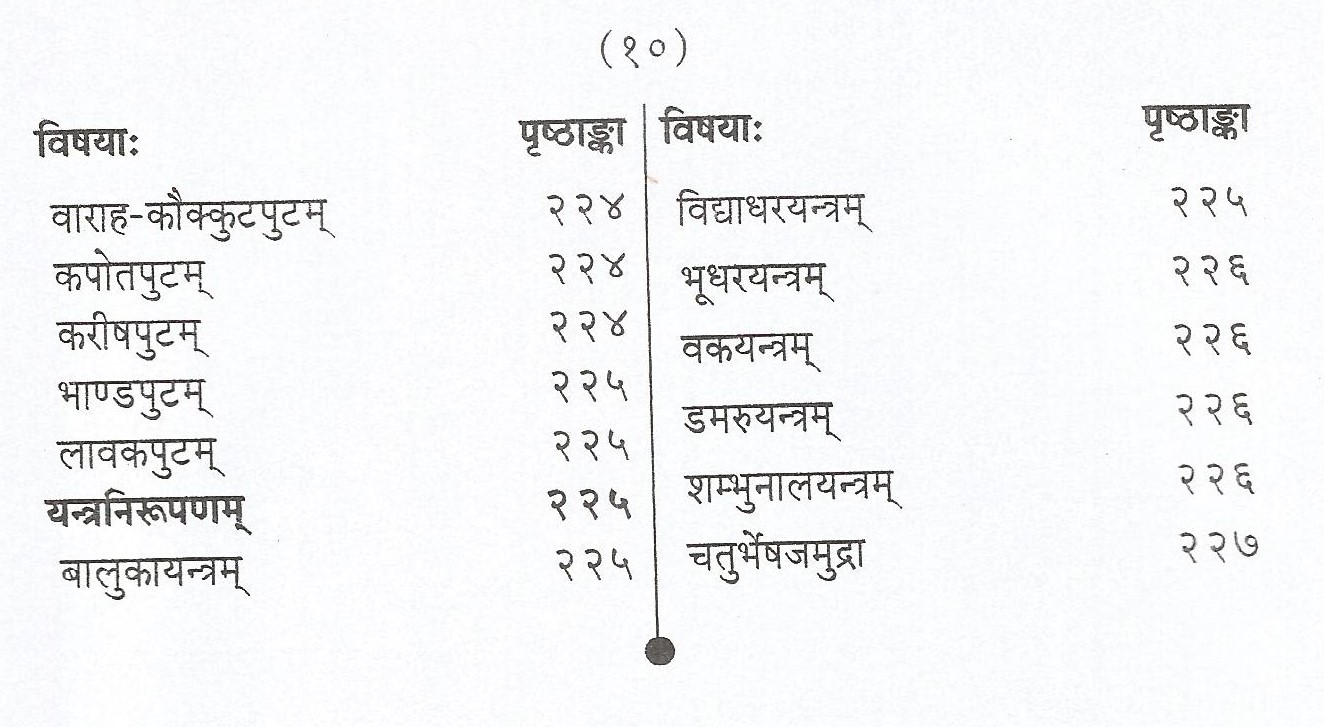 (१०)
विषयाः पृष्ठाङ्का
वाराह-कौक्कुटपुटम् २२४
कपोतपुटम् २२४
करीषपुटम् २२४
भाण्डपुटम् २२५
लावकपुटम् २२५
यन्त्रनिरूपणम् २२५
बालुकायन्त्रम् २२५
विषयाः पृष्ठाङ्का
विद्याधरयन्त्रम् २२५
भूधरयन्त्रम् २२६
वकयन्त्रम् २२६
डमरुयन्त्रम् २२६
शम्भुनालयन्त्रम् २२६
चतुर्भेषजमुद्रा २२७